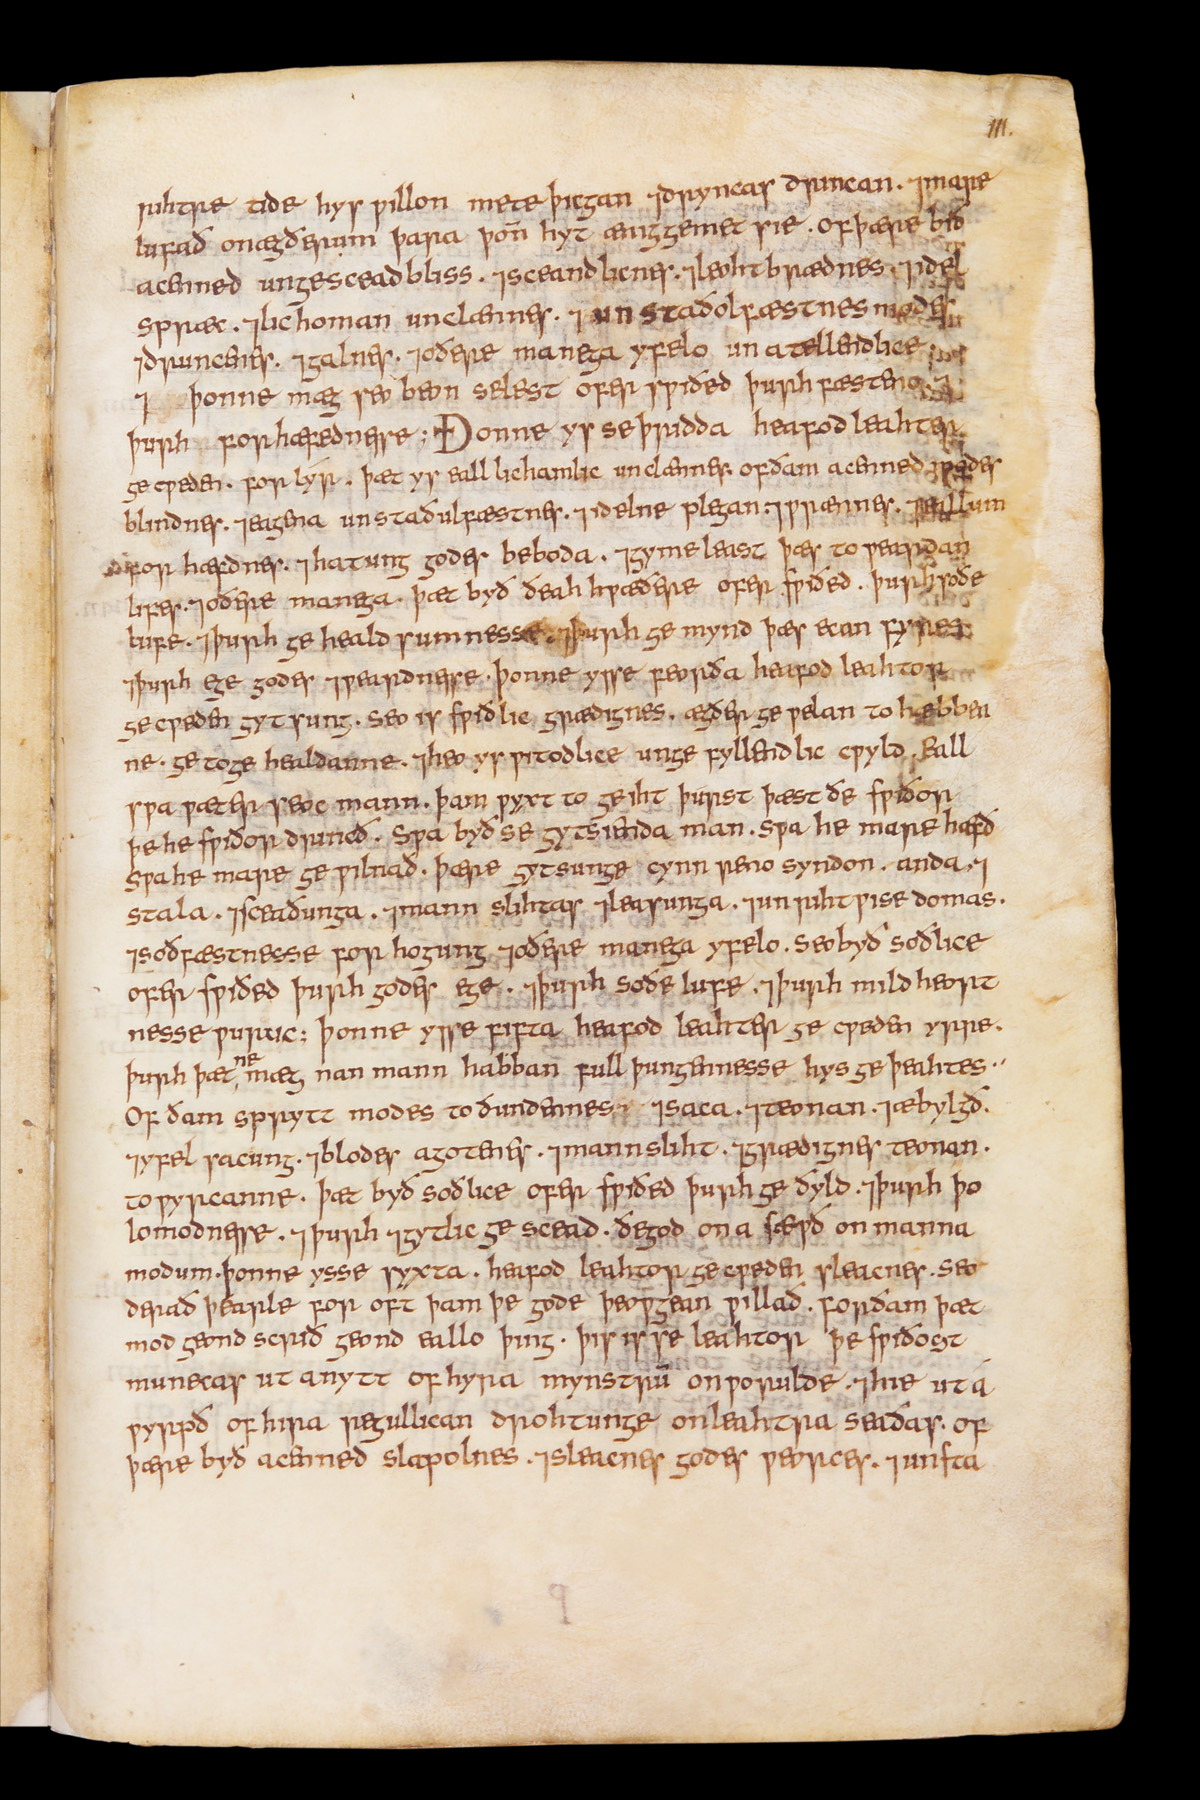 111.
rihtre tide hys ƿillon mete þiegan ⁊ dryncas druncan . ⁊ mare
lufað on ægðerum þara þoñ hyt ænig gemet sie . of þære bið
acenned ungescead bliss . ⁊ sceandlicnes . ⁊ leohtbrædnes . ⁊ idel
spræc . ⁊ lichoman unclænnes . ⁊ unstaðolfæstnes modes
⁊ druncenes . ⁊ galnes . ⁊ oðere manega yfelo unatellendlice
⁊ þonne mæg seo beon selest ofersƿiðed þurh fæsteno . ⁊
þurh forhæfednesse ; Ðonne ys se þridda heafodleahter
gecƿeden . forlyr . þæt ys eall lichamlic unclænnes of ðam acenned modes
blindnes . ⁊ eagena unstaðulfæstnes . ⁊ idelne plegan : ⁊ ƿrænnes . ⁊ eallum
for hæfdnes . ⁊ hatung godes beboda . ⁊ gymeleast þæs toƿeardan
lifes . ⁊ oðere manega . þæt byð ðeah hƿæðere ofersƿiðed . þurh soðe
lufe . ⁊ þurh geheald sumnesse . ⁊ þurh gemynd þæs ecan fyres
⁊ þurh ege godes ⁊ ƿeardnesse . þonne ysse feorða heafod leahtor
gecƿeden gytsung . seo is sƿiðlic grædignes . ægðer ge ƿelan to hæbben
ne . ge to gehealdanne . ⁊ heo ys ƿitodlice ungefyllendlic cƿyld . Eall
sƿa ƿæter seoc mann . þam ƿyxt to geiht þurst þæst ðe sƿiðor
þe he sƿiðor drincð . Sƿa byð se gytsienda man . sƿa he mare hæfð
sƿa he mare geƿilnað . þære gytsunge cynn seno syndon . anda . ⁊
stala . ⁊ sceaðunga . ⁊ mann slihtas ⁊ leasunga . ⁊ unrihtƿise domas .
⁊ soðfæstnesse forhogung ⁊ oðere manega yfelo . seo byð soðlice
ofersƿiðed þurh godes ege . ⁊ þurh soðe lufe . ⁊ þurh mildheort
nesse ƿuruc ; þonne ysse fifta heafod leahter gecƿeden yrre .
þurh þæt ne mæg nan mann habban full þungennesse hys geþeahtes .
Of ðam sprytt modes toðundennes ⁊ saca . ⁊ teonan . ⁊ æbylgð .
⁊ yfel sacung . ⁊ blodes agotenes . ⁊ mannsliht . ⁊ grædignes teonan .
to ƿyrcanne . þæt byð soðlice ofersƿiðed þurh geðyld . ⁊ þurh þo
lomodnesse . ⁊ þurh ⁊gytlic gescead . ðe god on a sæƿð on manna
modum . þonne ysse syxta . heafod leahtor gecƿeden sleacnes . seo
derað þearle foroft þam þe gode þeoƿgean ƿillað . forðam þæt
mod geondscrið geond eallo þing . þis is se leahtor þe sƿiðost
munecas ut anytt of hyra mynstrū on ƿorulde . ⁊ hie ut á
ƿyrpð of hira regullican drohtunge on leahtra seaðas . of
þære byð acenned slapolnes . ⁊ sleacnes godes ƿeorces . ⁊ unsta